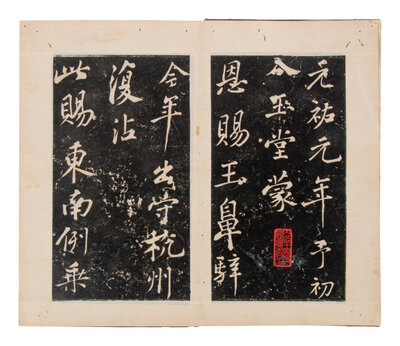 元祐元年予初
入玉堂蒙
恩賜玉鼻騂
今年出守杭州
復沾
此賜東南例乘